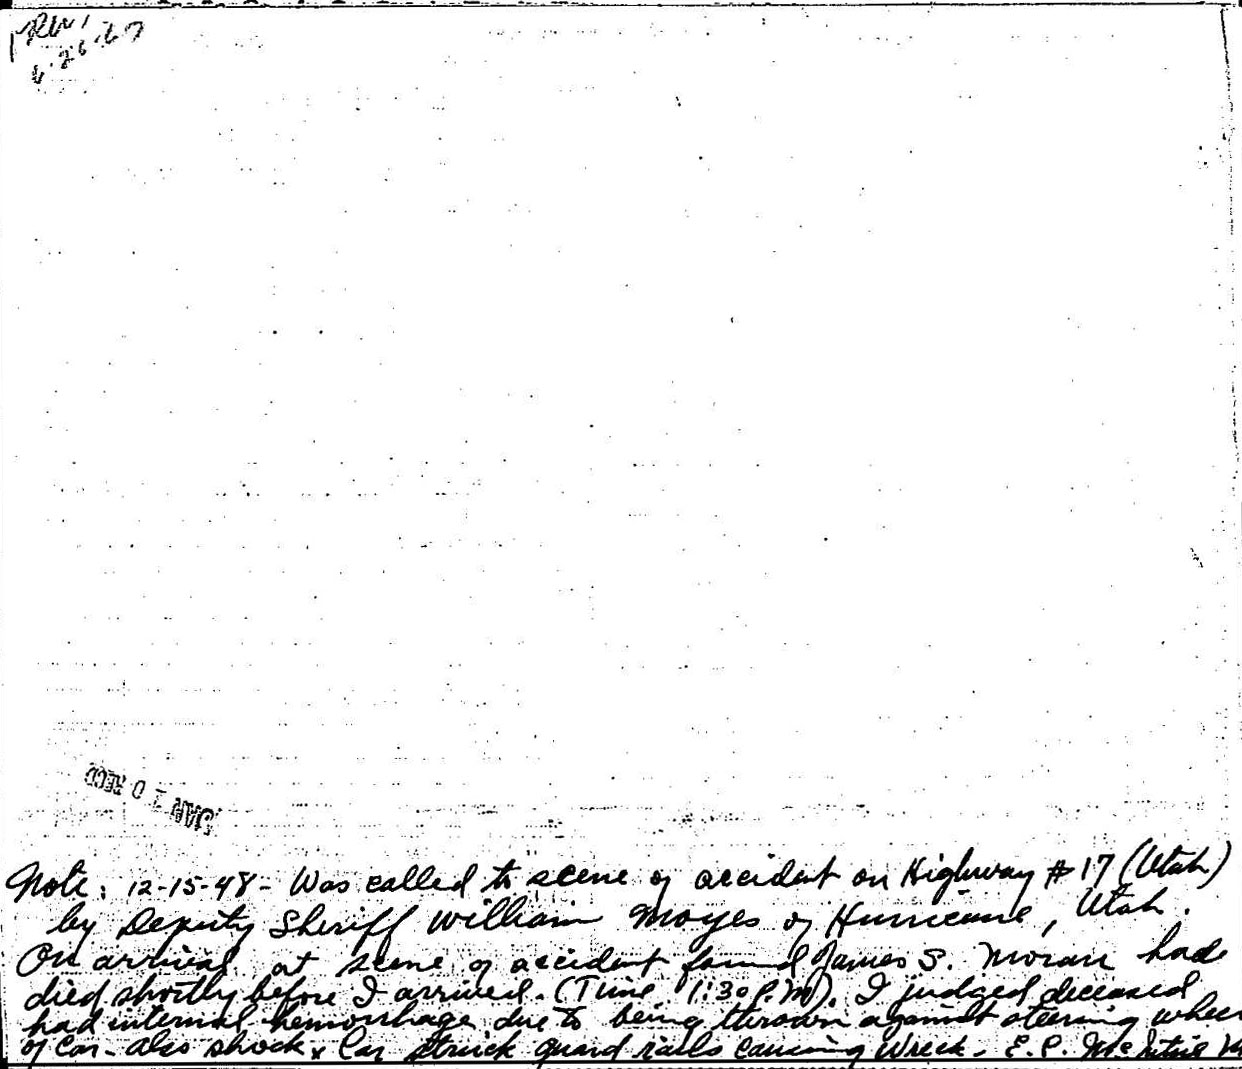 6-26-67
JAN 10 REC'D
Note: 12-15-48 - Was called to scene of accident on Highway #17 (Utah)
by Deputy Sheriff William Moyes of Hurricane, Utah.
On arrival at scene of accident found James S. Moran had
died shortly before I arrived. (Time 1:30 P.M). I judged deceased
had internal hemorrhage due to being thrown against steering wheel
of car - also shock x Car struck guard rails causing wreck - E.C.